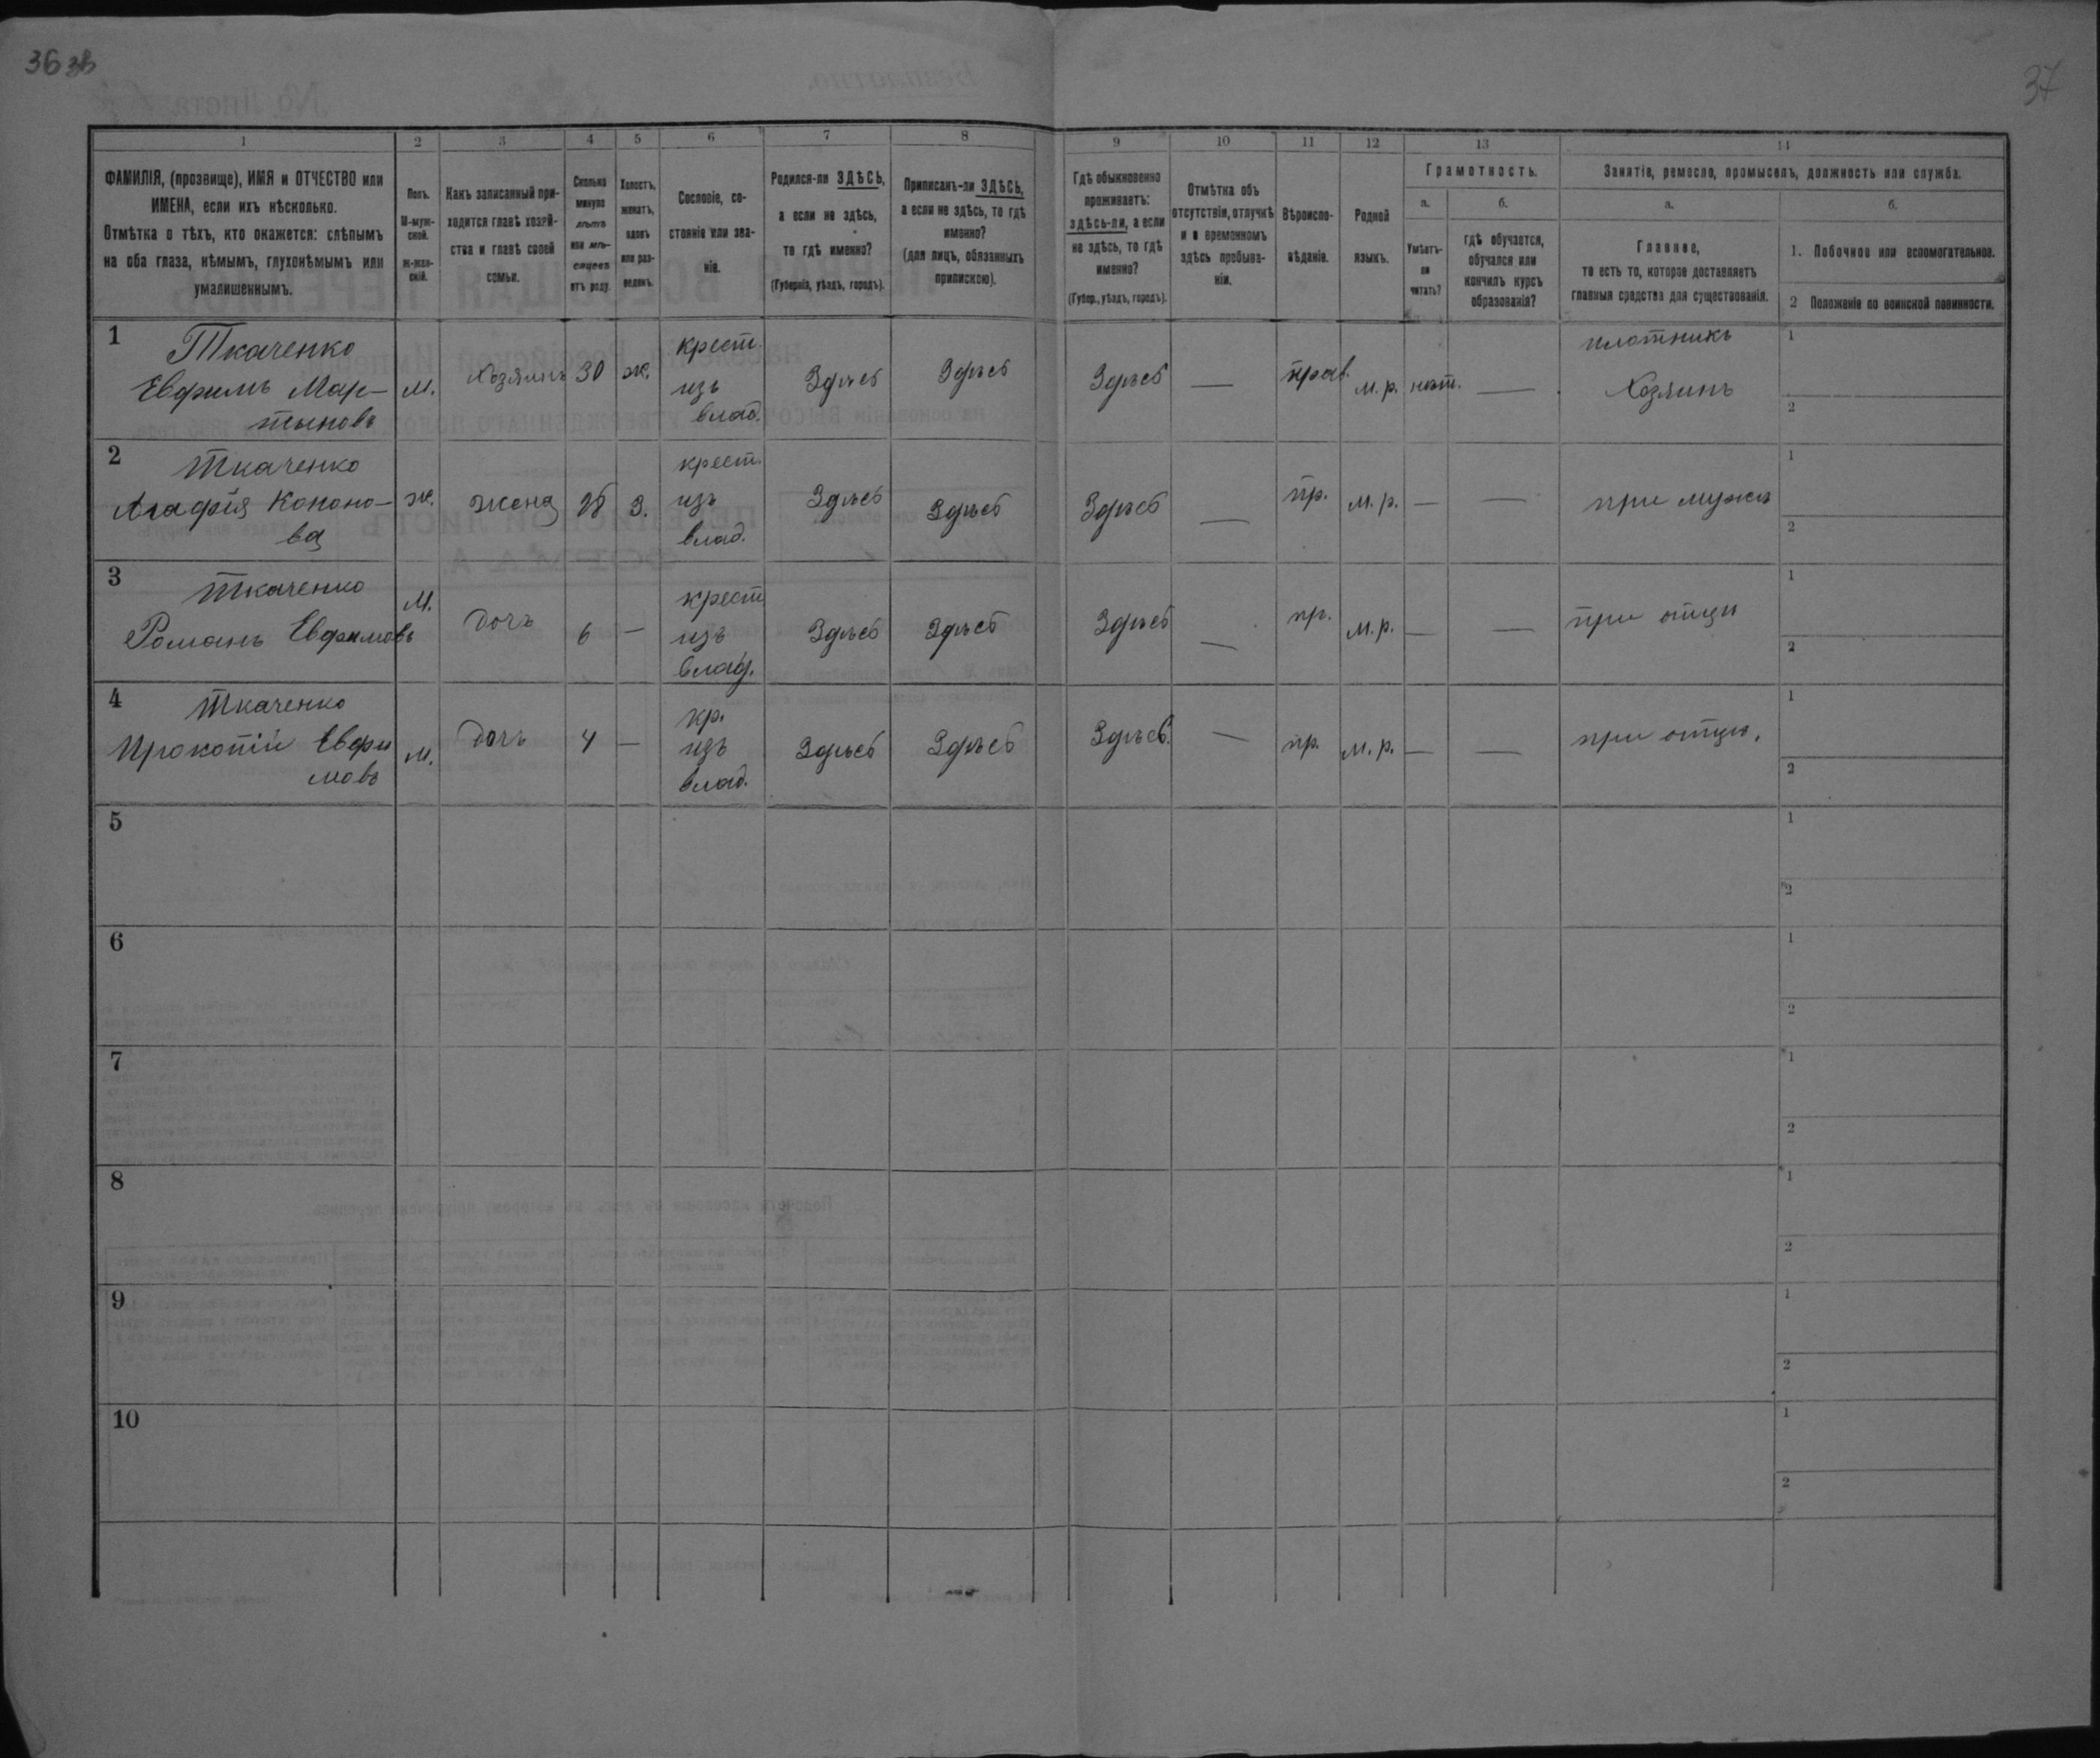 36 зв
37
1
2
3
4
5
6
7
8
9
10
11
12
13
14
ФАМИЛІЯ, (прозвище), ИМЯ и ОТЧЕСТВО или
ИМЕНА, если ихъ нѣсколько.
Отмѣтка о тѣхъ, кто окажется: слѣпымъ
на оба глаза, нѣмымъ, глухонѣмымъ или
умалишеннымъ.
Полъ.
М-муж-
ской.
ж-жен-
скій.
Какъ записанный при-
ходится главѣ хозяй-
ства и главѣ своей
семьи.
Сколько
минуло
лѣтъ
или мѣ-
сяцевъ
отъ роду.
Холостъ,
женатъ,
вдовъ
или раз-
веденъ.
Сословіе, со-
стояніе или зва-
ніе.
Родился-ли ЗДѢСЬ,
а если не здѣсь,
то гдѣ именно?
(Губернія, уѣздъ, городъ).
Приписанъ-ли ЗДѢСЬ,
а если не здѣсь, то гдѣ
именно?
(для лицъ, обязанныхъ
припискою).
Гдѣ обыкновенно
проживаетъ:
здѣсь-ли, а если
не здѣсь, то гдѣ
именно?
(Губер., уѣздъ, городъ).
Отмѣтка объ
отсутствіи, отлучкѣ
и о временномъ
здѣсь пребыва-
ніи.
Вѣроиспо-
вѣданіе.
Родной
языкъ.
Грамотность.
а.
Умѣетъ-
ли
читать?
б.
гдѣ обучается,
обучался или
кончилъ курсъ
образованія?
Занятіе, ремесло, промыселъ, должность или служба.
а.
Главное,
то есть то, которое доставляетъ
главныя средства для существованія.
б.
1. Побочное или вспомогательное.
2 Положеніе по воинской повинности.
1
Ткаченко
Евфимъ Мар-
тыновъ
м.
Хозяинъ
30
ж.
крест.
изъ
влад.
Здѣсь
Здѣсь
Здѣсь
—
прав.
м. р.
нѣт.
—
плотникъ
Хозяинъ
1
2
2
Ткаченко
Агафія Кононо-
ва
ж.
жена
28
З.
крест.
изъ
влад.
Здѣсь
Здѣсь
Здѣсь
—
пр.
м. р.
—
—
при мужѣ
1
2
3
Ткаченко
Романъ Евфимовъ
М.
дочь
6
—
крест
изъ
влад.
Здѣсь
Здѣсь
Здѣсь
—
пр.
м. р.
—
—
при отцѣ
1
2
4
Ткаченко
Прокопій Евфи
мовъ
м.
дочь
4
—
кр.
изъ
влад.
Здѣсь
Здѣсь
Здѣсь.
—
пр.
м. р.
—
—
при отцѣ.
1
2
5
1
2
6
1
2
7
1
2
8
1
2
9
1
2
10
1
2